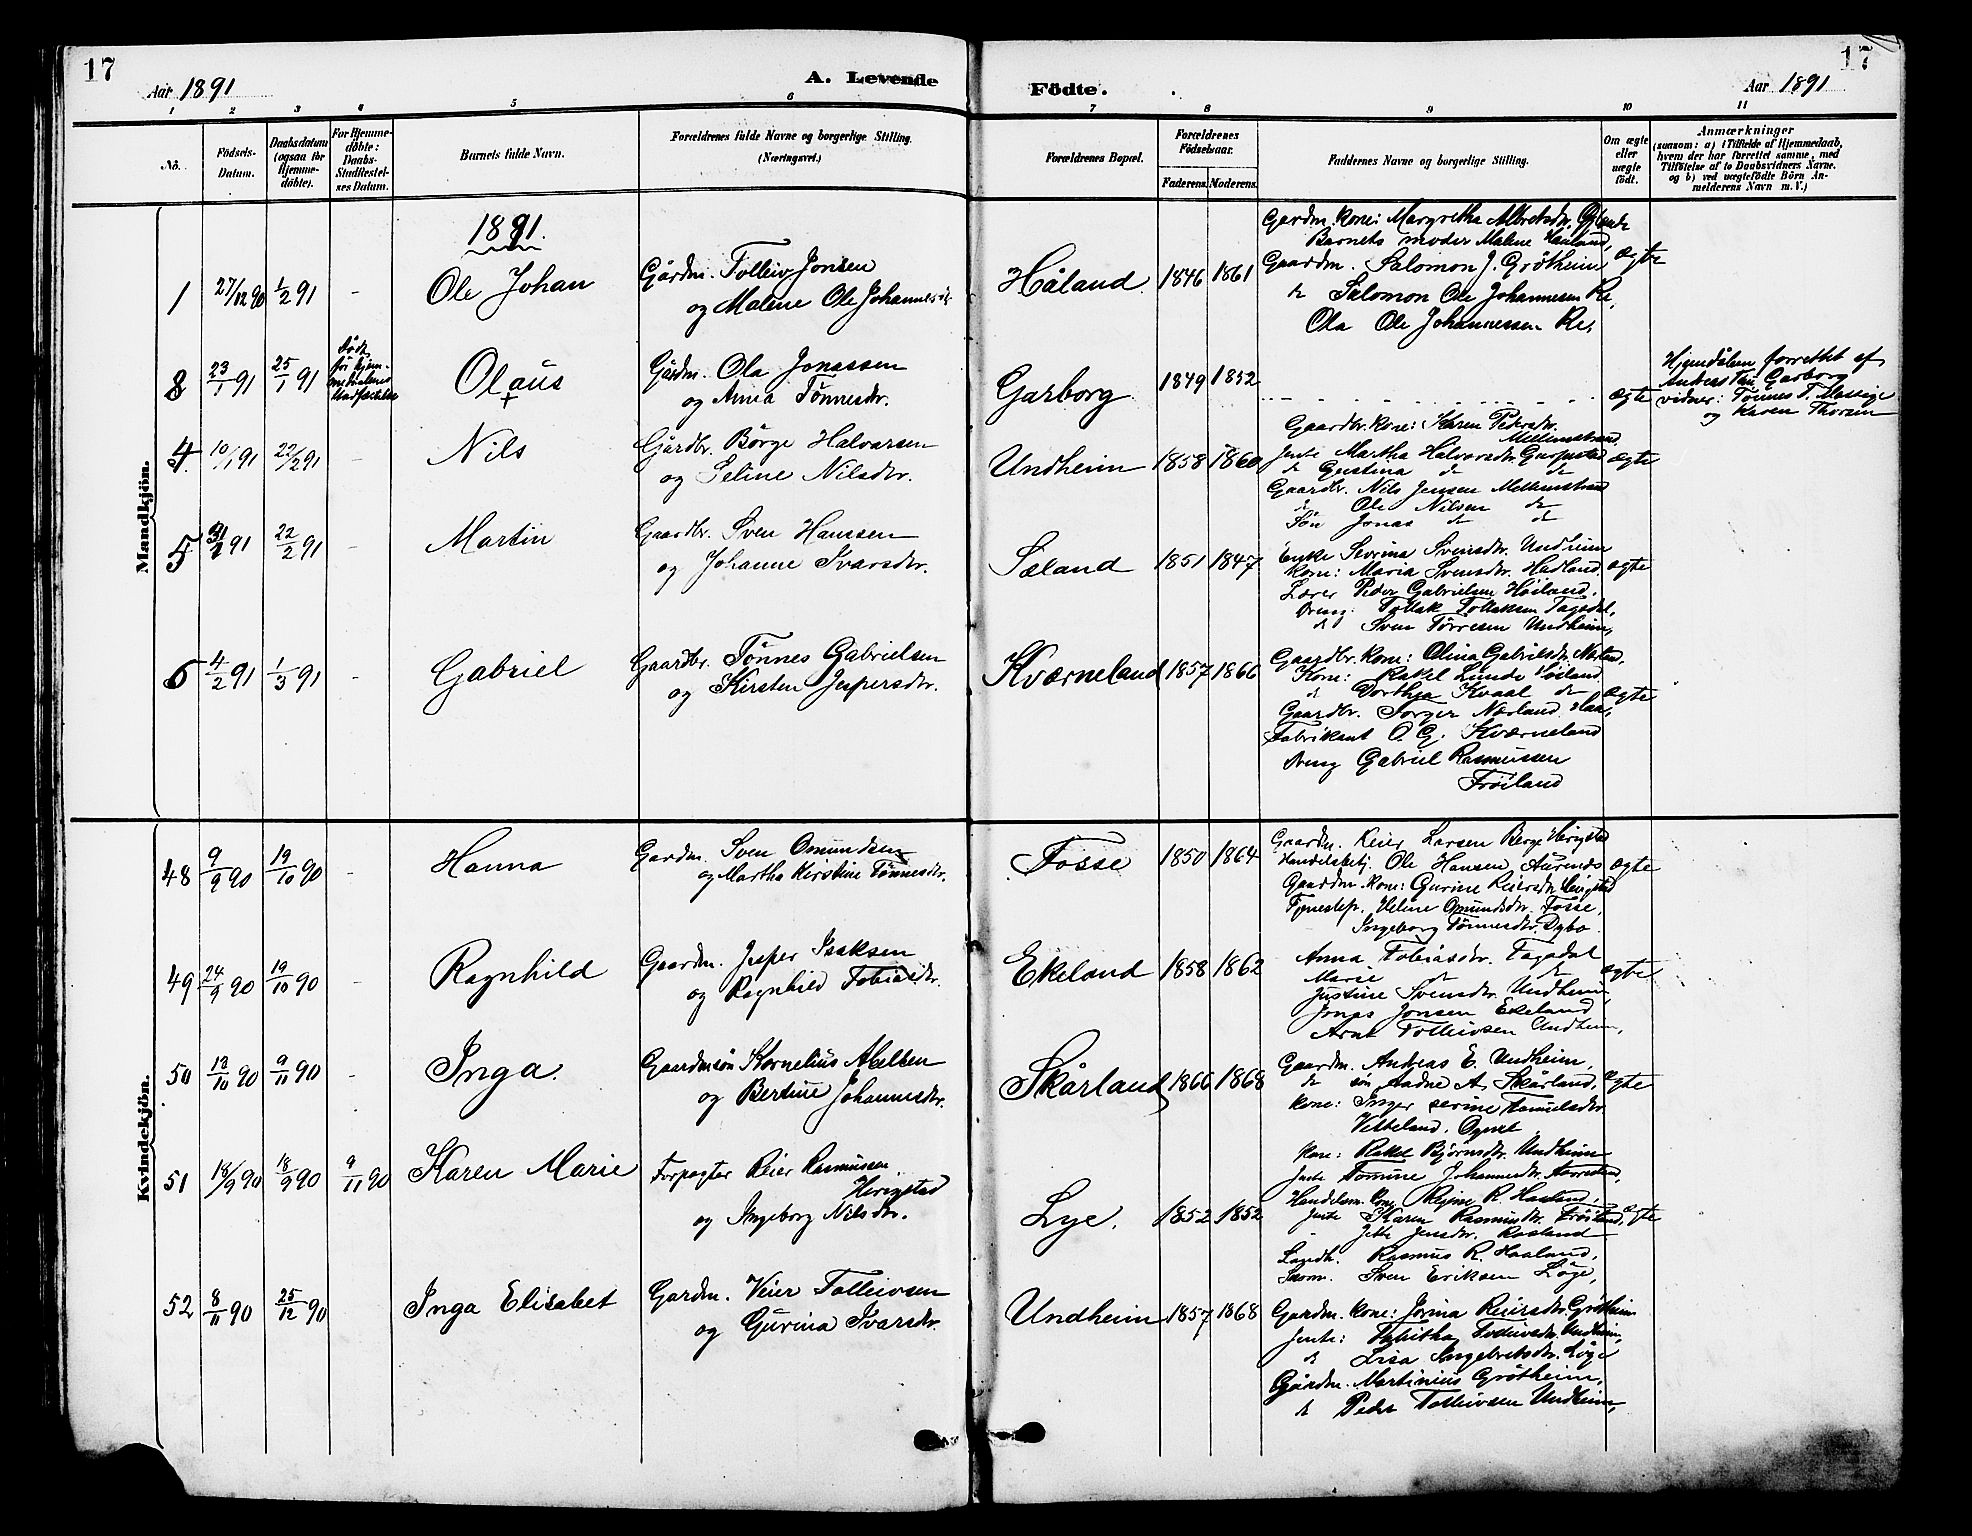 17
Aar 1891
A. Levende
Födte.
Aar 1891
17
1 2 3 4 5 6 7 8 9 10 11
No.
Födsels-Datum.
Daabsdatum (ogsaa for Hjemmedöbte).
For Hjemmedöbte: Daabs-Stadfæstelses Datum.
Barnets fulde Navn.
Forældrenes fulde Navne og borgerlige Stilling.
(Næringsvei.)
Forældrenes Bopæl.
Forældrenes Födselsaar.
Faderens. Moderens.
Faddernes Navne og borgerlige Stilling.
Om ægte eller uægte födt.
Anmærkninger
(saasom: a) i Tilfælde af Hjemmedaab, hvem der har forrettet samme, med Tilföielse af to Daabsvidners Navne. og b) ved uægtefödte Börn Anmelderens Navn m. V.)
Mandkjön.
1891.
1 27/12 90 1/2 91 - Ole Johan
Gårdm. Tolleiv Jonsen
og Malene Ole Johannesdr
Håland 1846 1861
Gardm. kone: Margretha Albretsdr.
Barnets moder Malene Haaland,
Gaardm. Salomon J. Grötheim
d Salomon Ole Johannesen Re,
Ola Ole Johannessen Re,
ægte
8 23/1 91 25/1 91
Olaus
+
Gårdm. Ola Jonassen
og Anna Tønnesdr.
Garborg 1849 1852
ægte
Hjemdåben forrettet af
Garborg
vidner: Tønnes T.
og Karen Thorsen
4 10/1 91 22/2 91 - Nils
Gårdbr. Börge Halvorsen
og Seline Nilsdr.
Undheim 1858 1860
Gaardbr. kone: Karen Pedersdr.
Mellemstrand
Jente Martha Halvorsdr.
d Gustina d d
Gaardbr. Nils Jensen Mellemstrand
d Ole Nilsen d
Sön Jonas d d
ægte
5 91 22/2 91 - Martin
Gaardbr. Sven Hansen
og Johanne Ivarsdr.
Sæland 1851 1847
Enke Severina Svensdr. Undheim
Kone: Maria Svensdr. Hadland.
Lærer Peder Gabrielsen Höiland.
Dreng: Tollak Tollaksen Tagsdal,
d Sven Torresen Undheim,
ægte
6 4/2 91 1/3 91 - Gabriel
Gaardbr. Tönnes Gabrielsen
og Kirsten Jespersdr.
Kværneland 1857 1866
Gaardbr. kone: Olina Gabrielsdr. Nærland,
Kone: Rakel Lunde Höiland
d Dorthea Kvaal d
Gaardbr. Torger Nærland Haa,
Fabrikant O. G. Kværneland
Dreng Gabriel Rasmussen
Fröiland
ægte
Kvindekjön.
48 9/9 90 19/10 90 - Hanna
Gardm. Sven Omundsen
og Martha Kirstine Tönnesdr.
Fosse 1850 1864
Gaardm. Reier Larsen Berge Herigstad
Ole Hansen Aurenes
Gaardm. kone: Gurine Reiersdr. Herigstad
Tjenestepi. Heline Omundsdr. Fosse,
Ingeborg Tönnesdr. Dybo.
ægte
49 24/9 90 19/10 90 - Ragnhild
Gaardm. Jesper Isaksen
og Ragnhild Tobiasdr.
Ekeland 1858 1862
Anna Tobiasdr. Tagsdal
Marie d d
Justine Svensdr. Undheim,
Jonas Jonsen Ekeland
Tolleivsen Undheim,
ægte
50 13/10 90 9/11 90 - Inga.
Gaardmsön Kornelius Abelsen
og Bertine Johannesdr.
Skårland 1866 1868
Gaardm. Andreas E. Undheim,
d sön Aadne A. Skårland,
Kone: Inger Serine Samuelsdr.
Vetteland, Ogne
Kone: Rakel Björnsdr. Undheim
Jente Tomine Johannesdr.
ægte
51 18/9 90 18/9 90 9/11 90 Karen Marie
Forpagter Reier Rasmussen
Herigstad
og Ingeborg Nilsdr.
Lye. 1852 1852
Handelsm. kone Regine R. Haaland,
Jente Karen Rasmusdr. Fröiland,
Jensdr. Rosland
Rasmus R. Haaland,
Sven Eriksen Löge,
ægte
52 8/11 90 25/12 90 Inga Elisabet
Gardm. Veier Tolleivsen
og Gurina Ivarsdr.
Undheim 1857 1868
Gardm. kone: Jorina Reiersdr. Grötheim
Jente: Tabitha Tolleivsdr. Undheim,
d Lisa Ingebretsdr. Löge
Gårdm. Martinius Grötheim,
d Peder Tolleivsen Undheim,